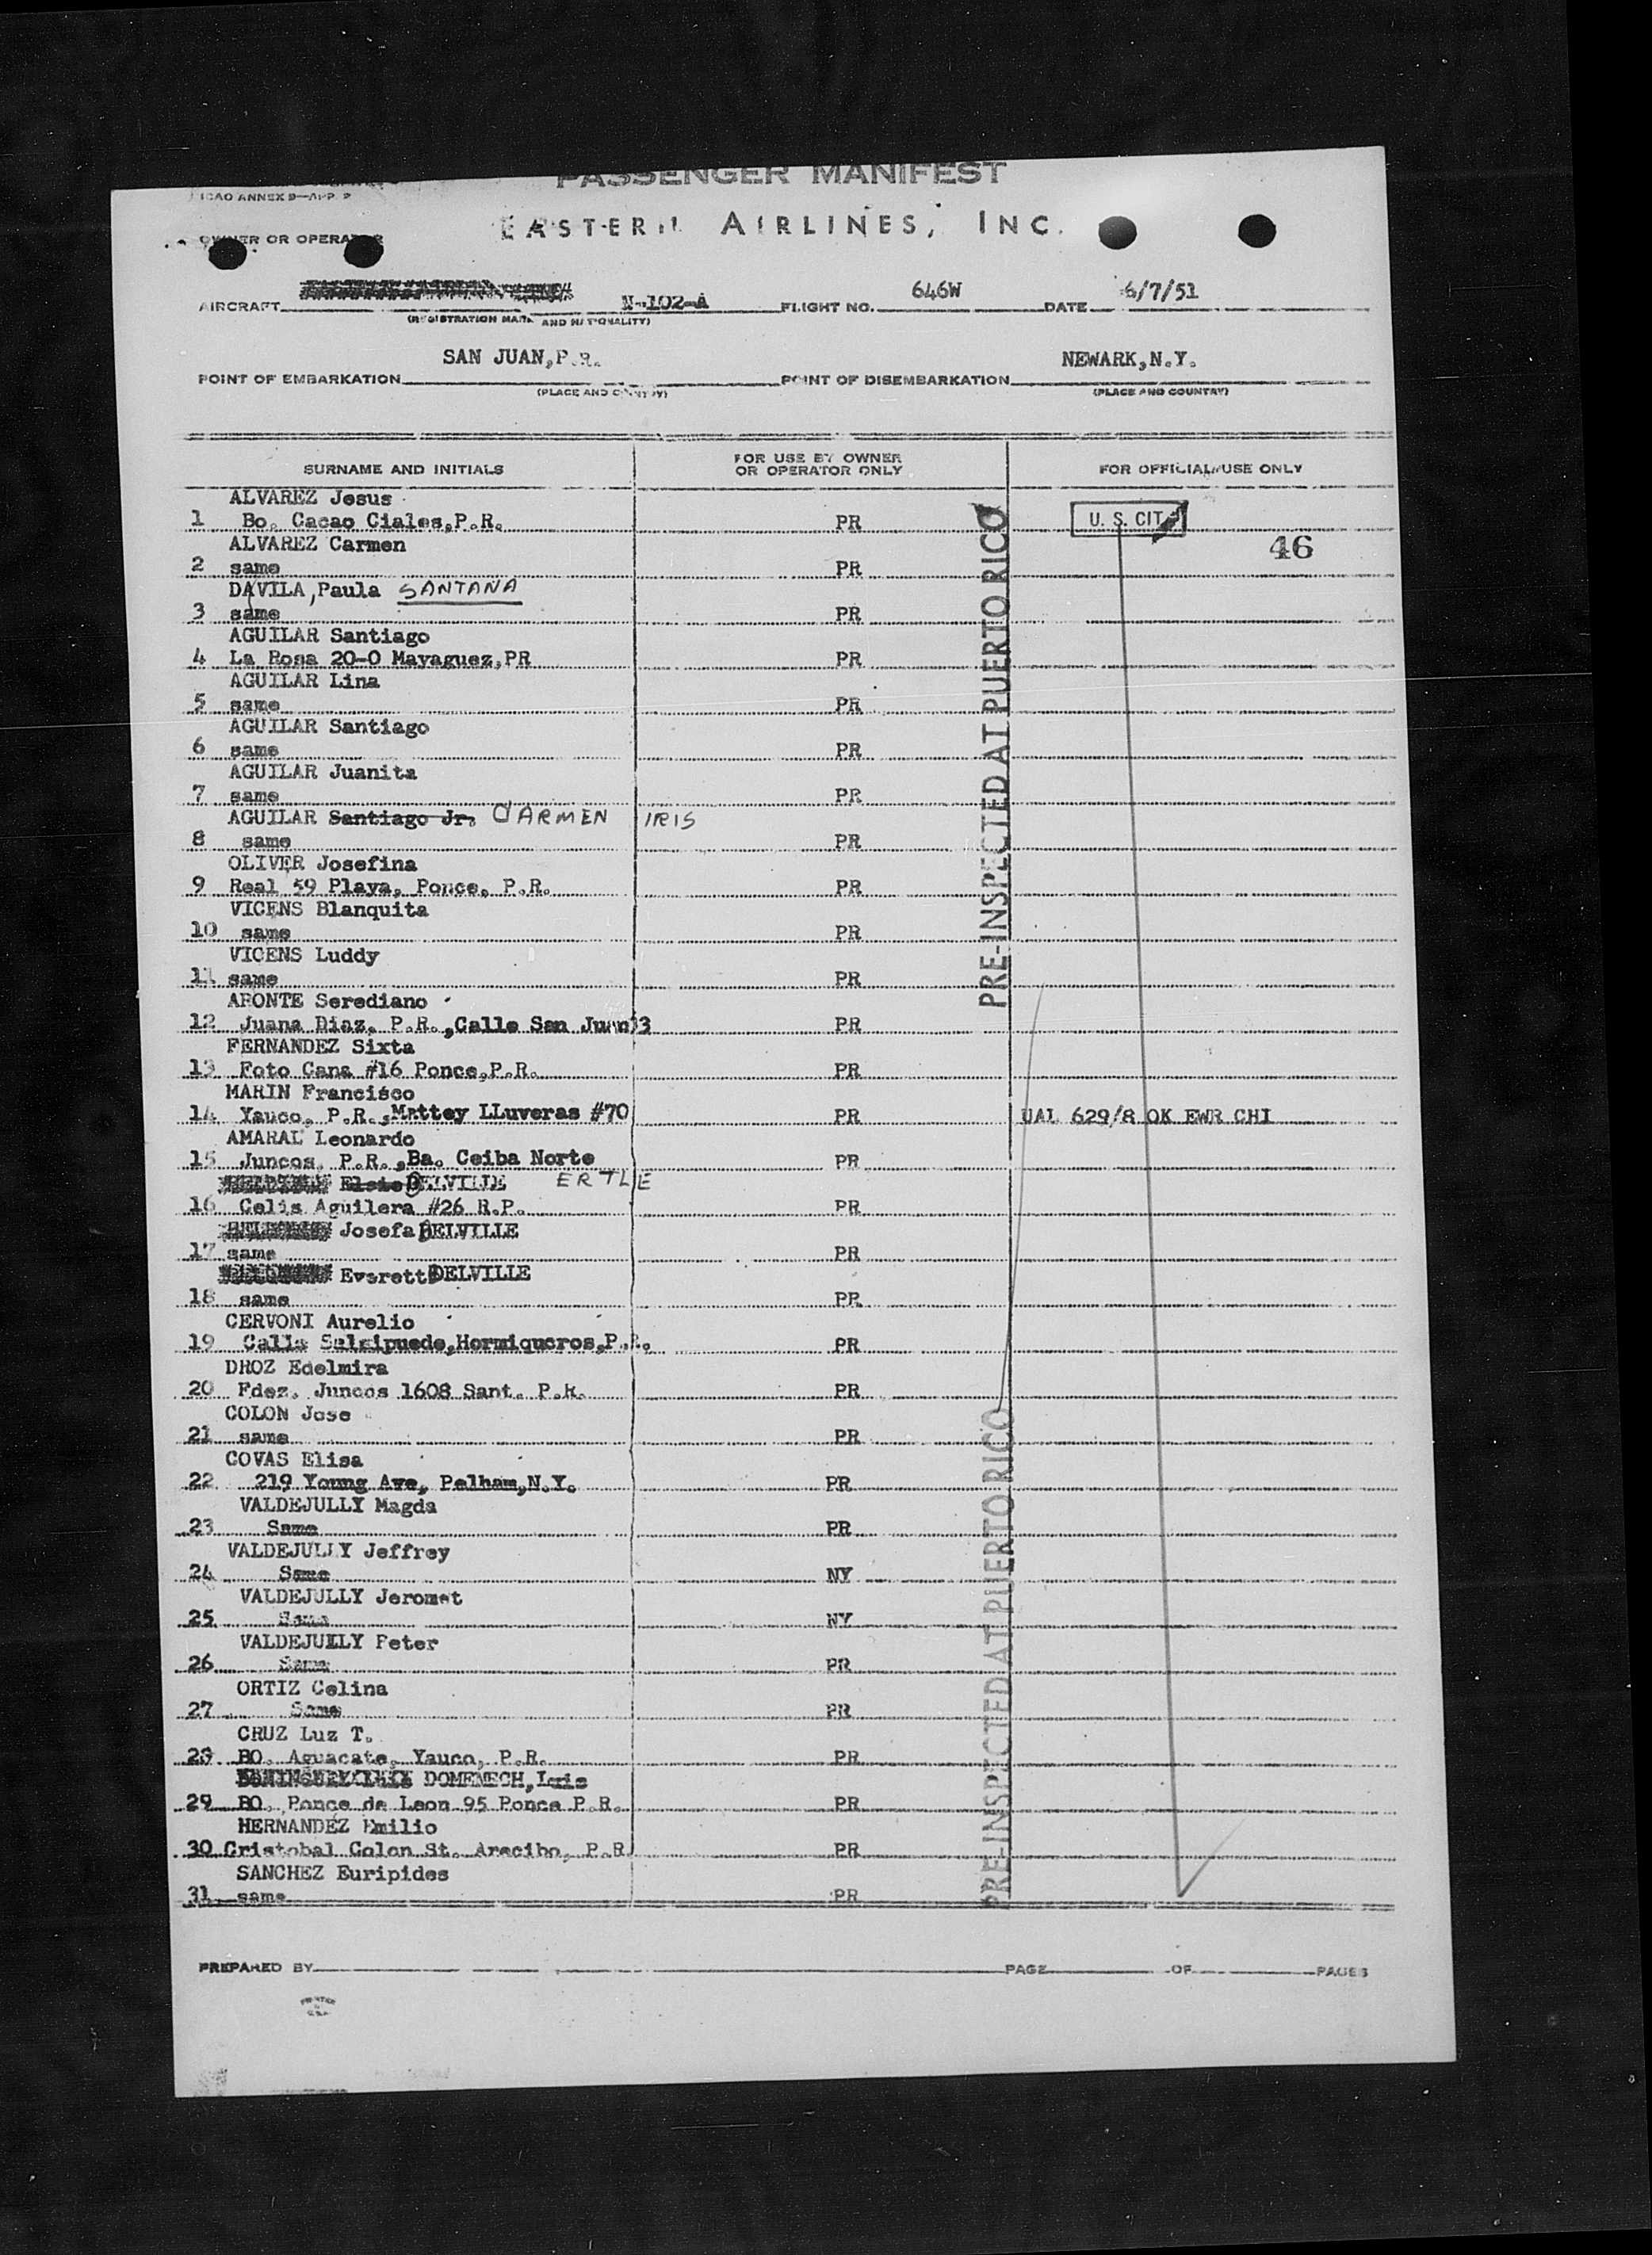 PASSENGER MANIFEST
ICAO ANNEX 9—APP. 2
EASTERN AIRLINES, INC.
OWNER OR OPERATOR
AIRCRAFT N-102-A FLIGHT NO. 646W DATE 6/7/51
(REGISTRATION MARK AND NATIONALITY)
SAN JUAN,P.R. NEWARK,N.Y.
POINT OF EMBARKATION POINT OF DISEMBARKATION
(PLACE AND COUNTRY) (PLACE AND COUNTRY)
SURNAME AND INITIALS FOR USE BY OWNER OR OPERATOR ONLY FOR OFFICIAL USE ONLY
ALVAREZ Jesus
1 Bo. Cacao Ciales,P.R. PR U. S. CIT
ALVAREZ Carmen 46
2 same PR
DAVILA,Paula SANTANA
3 same PR
AGUILAR Santiago
4 La Rosa 20-0 Mayaguez,PR PR
AGUILAR Lina
5 same PR
AGUILAR Santiago
6 same PR
AGUILAR Juanita
7 same PR
AGUILAR Santiago Jr. CARMEN IRIS
8 same PR
OLIVER Josefina
9 Real 59 Playa, Ponce, P.R. PR
VICENS Blanquita
10 same PR
VICENS Luddy
11 same PR
APONTE Serediano
12 Juana Diaz, P.R.,Calle San Juan 3 PR
FERNANDEZ Sixta
13 Foto Cana #16 Ponce,P.R. PR
MARIN Francisco
14 Yauco, P.R.,Mattey LLuveras #70 PR UAL 629/8 OK EWR CHI
AMARAL Leonardo
15 Juncos, P.R.,Ba. Ceiba Norte PR
Elsie DELVILLE ERTLE
16 Celis Aguilera #26 R.P. PR
Josefa DELVILLE
17 same PR
Everett DELVILLE
18 same PR
CERVONI Aurelio
19 Calle Salsipuede,Hormigueros,P.R. PR
DROZ Edelmira
20 Fdez. Juncos 1608 Sant. P.R. PR
COLON Jose
21 same PR
COVAS Elisa
22 219 Young Ave, Pelham,N.Y. PR
VALDEJULLY Magda
23 Same PR
VALDEJULLY Jeffrey
24 Same NY
VALDEJULLY Jeromet
25 Same NY
VALDEJULLY Peter
26 Same PR
ORTIZ Celina
27 Same PR
CRUZ Luz T.
28 BO. Aguacate, Yauco, P.R. PR
DOMENECH,Luis
29 BO. Ponce de Leon 95 Ponce P.R. PR
HERNANDEZ Emilio
30 Cristobal Colon St. Arecibo, P.R. PR
SANCHEZ Euripides
31 same PR
PRE-INSPECTED AT PUERTO RICO
PRE-INSPECTED AT PUERTO RICO
PREPARED BY PAGE OF PAGES